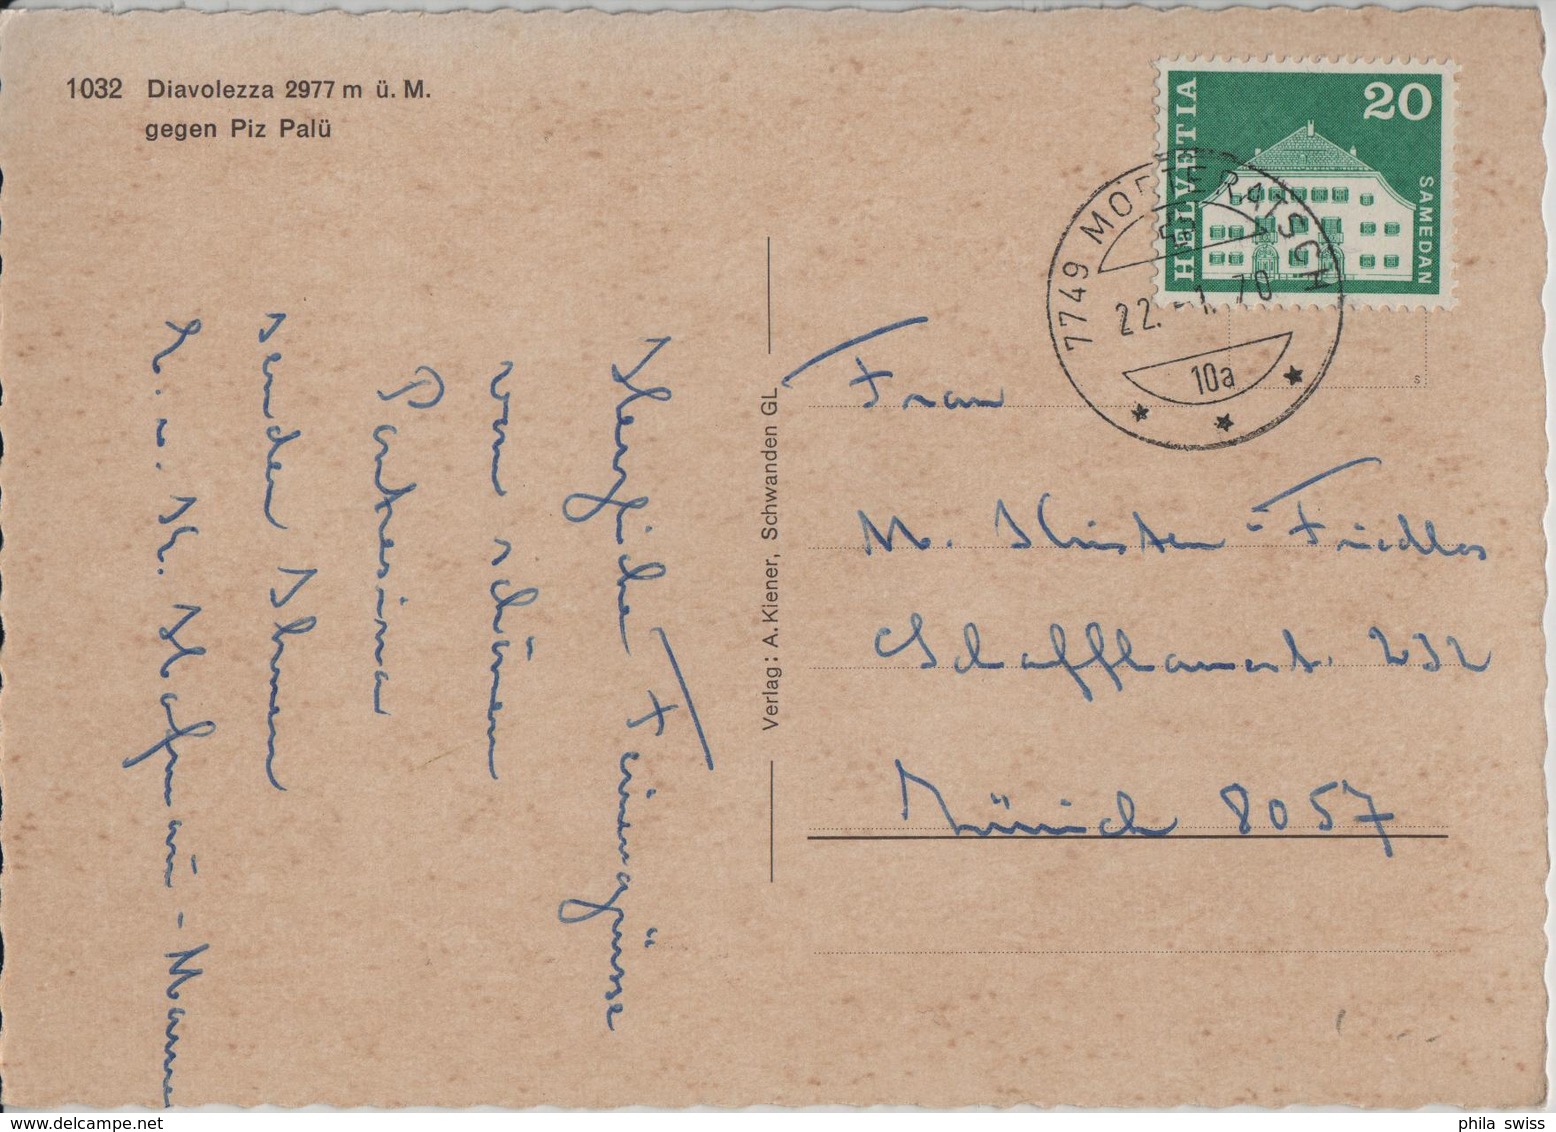 1032 Diavolezza 2977 m ü. M.
gegen Piz Palü
HELVETIA
20
SAMEDAN
7749 MORTERATSCH
22.-1. 70
10a
Verlag: A. Kiener, Schwanden GL
s
Herzliche Feriengrüsse
vom schönen
Pontresina
senden Ihnen
H. u. K. Hofmann-
Frau
M. Christen-Friedlos
Schaffhauserst. 232
Zürich 8057
phila swiss